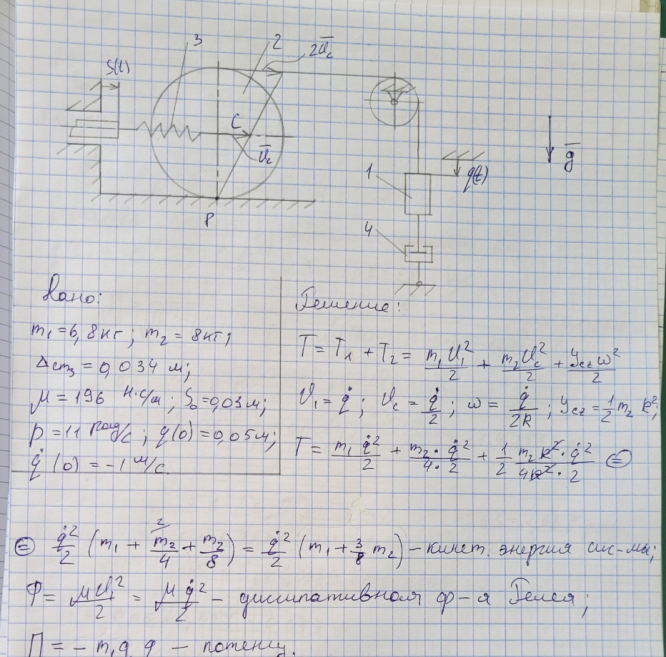 3
2
2V̅c
S(t)
C
V̅c
P
1
q(t)
4
g̅
Дано:
m₁=6,8кг; m₂ = 8кг;
Δст₃ = 0,034 м;
μ = 196 Н·с/м; S₀=0,03м;
p = 11 рад/с; q(0)=0,05м;
q̇(0) = -1 м/с.
Решение:
T = T₁ + T₂ = m₁V₁²/2 + m₂Vc²/2 + Jc₂ω²/2
V₁ = q̇; Vc = q̇/2; ω = q̇/2R; Jc₂ = 1/2 m₂ R²;
T = m₁q̇²/2 + m₂·q̇²/4·2 + 1/2 m₂R²·q̇²/4R²·2 =
= q̇²/2 (m₁ + 2m₂/4 + m₂/8) = q̇²/2 (m₁ + 3/8 m₂) – кинет. энергия сис-мы;
Ф = μV₁²/2 = μq̇²/2 – диссипативная ф-я Релея;
П = – m₁g q – потенц.